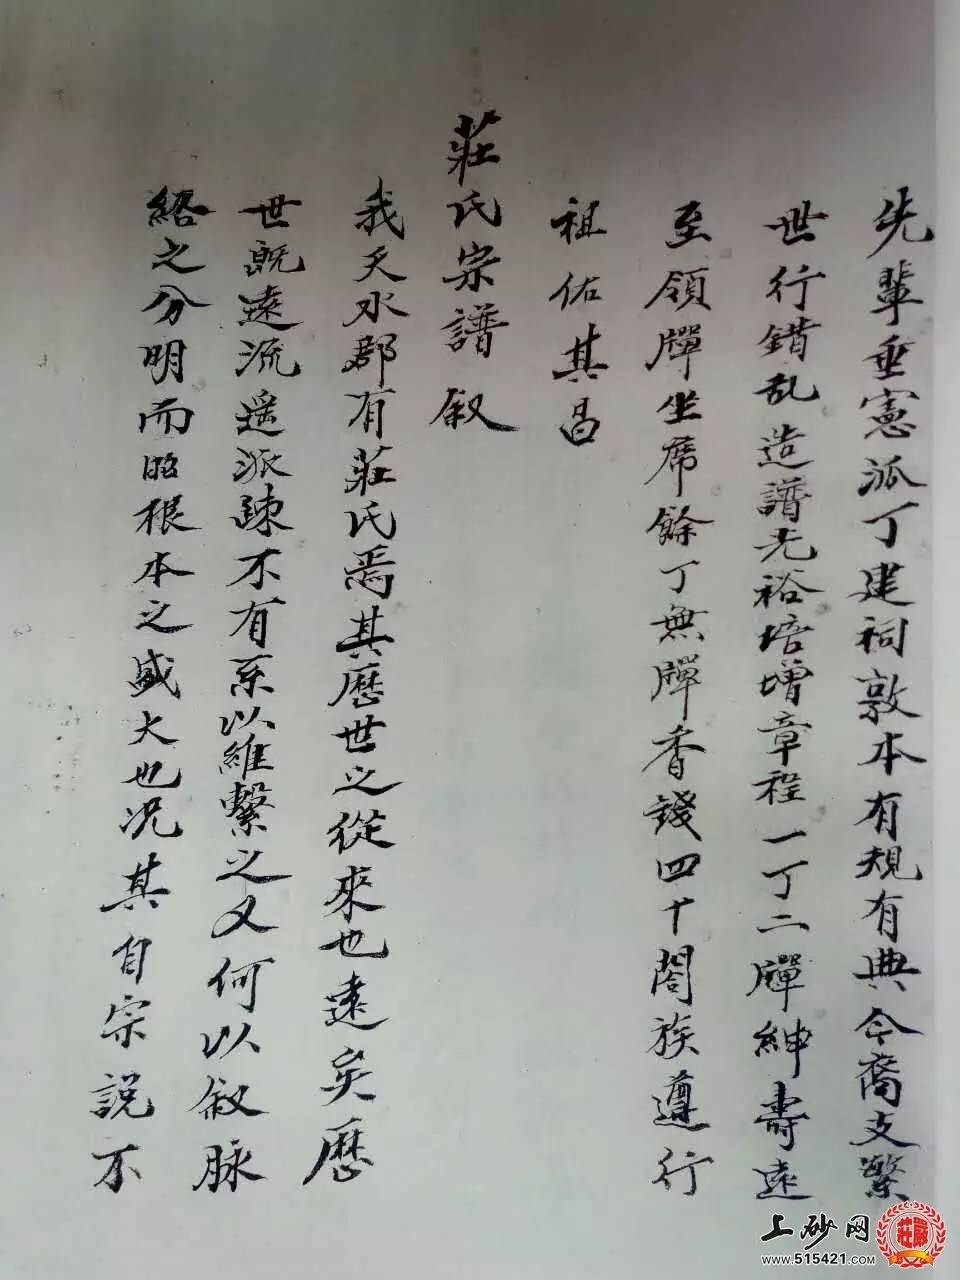 先輩垂憲派丁建祠敦本有規有典今裔支繁
世行錯乱造譜光裕培增章程一丁二胙紳壽遠
至領胙坐席餘丁無胙香錢四十閤族遵行
祖佑其昌
莊氏宗譜叙
我天水郡有莊氏焉其歷世之從來也遠矣歷
世既遠流遥派疎不有系以維繫之又何以叙脉
絡之分明而昭根本之盛大也况其自宗説不
上砂网
莊嚴
www.515421.com